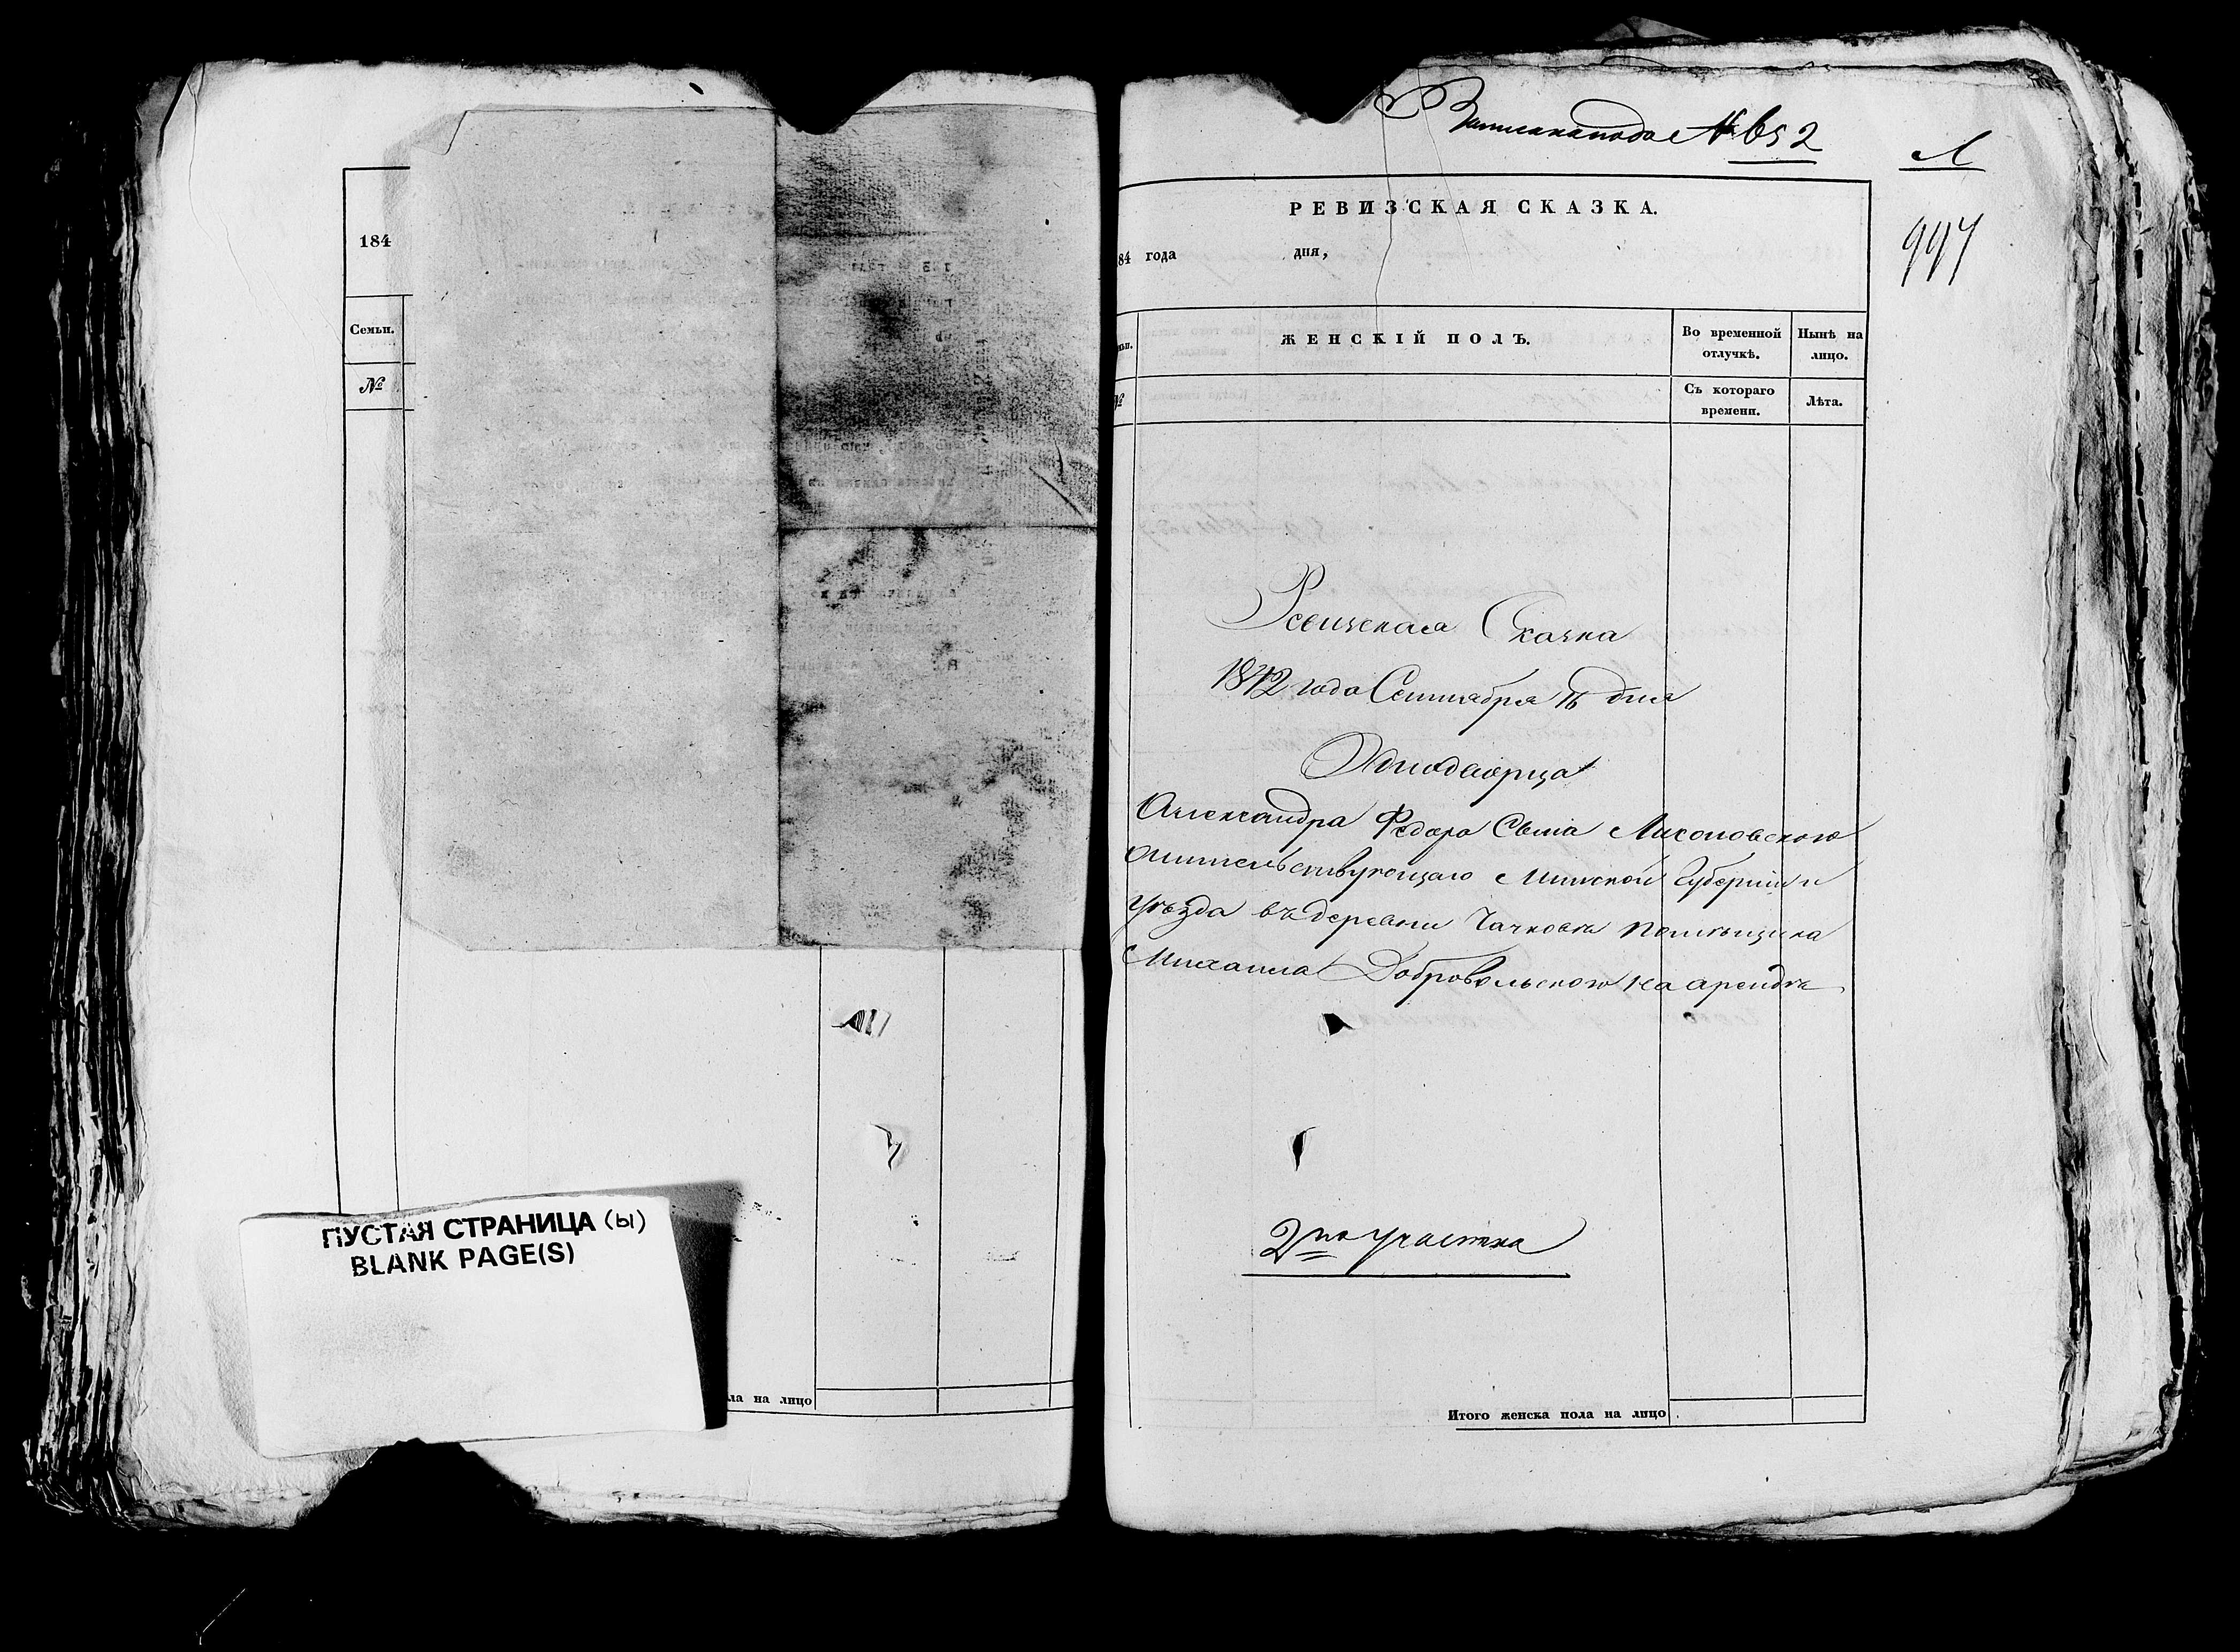 184
Семьи.
№
ла на лицо
ПУСТАЯ СТРАНИЦА (Ы)
BLANK PAGE(S)
Записана подъ № 652
Л
997
РЕВИЗСКАЯ СКАЗКА.
84 года дня,
ЖЕНСКІЙ ПОЛЪ.
Во временной отлучкѣ.
Нынѣ на лицо.
№
Съ котораго времени.
Лѣта.
Ревизская Сказка
1842 года Сентября 16 дня
Однодворца
Александра Федора Сына
жительствующаго Минской Губерніи и
уѣзда въ деревни помѣщика
Михаила Добровольского на арендѣ
2го участка
Итого женска пола на лицо